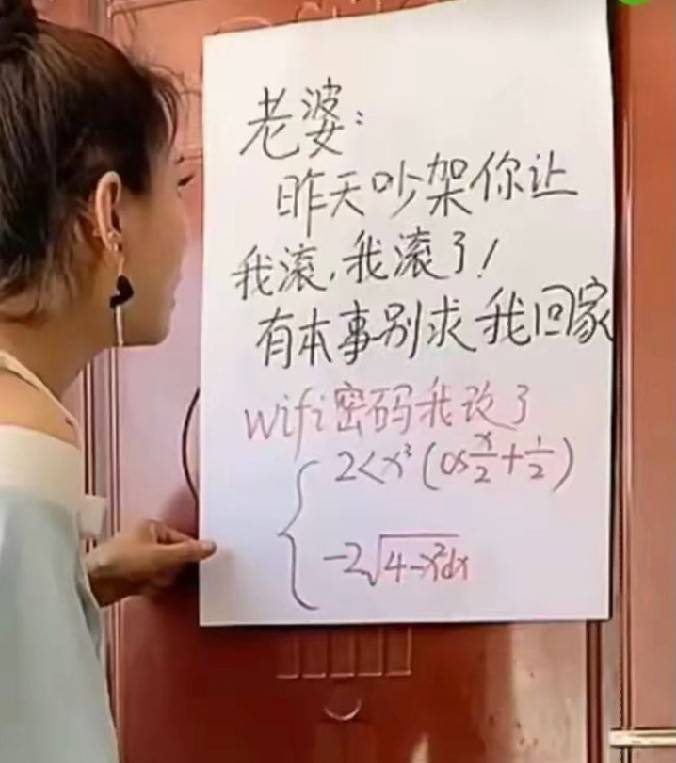 老婆:
昨天吵架你让
我滚,我滚了!
有本事别求我回家
wifi密码我改了
{ 2<x³(os x/2+1/2)
-2√4-x²dx